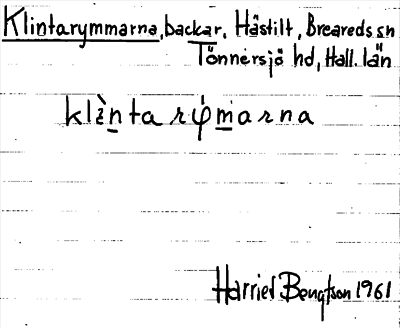 Klintarymmarna, backar, Håstilt, Breareds sn
Tönnersjö hd, Hall. län
klìn̲ta rφ̇m̲arna
Harriet Bengtson 1961